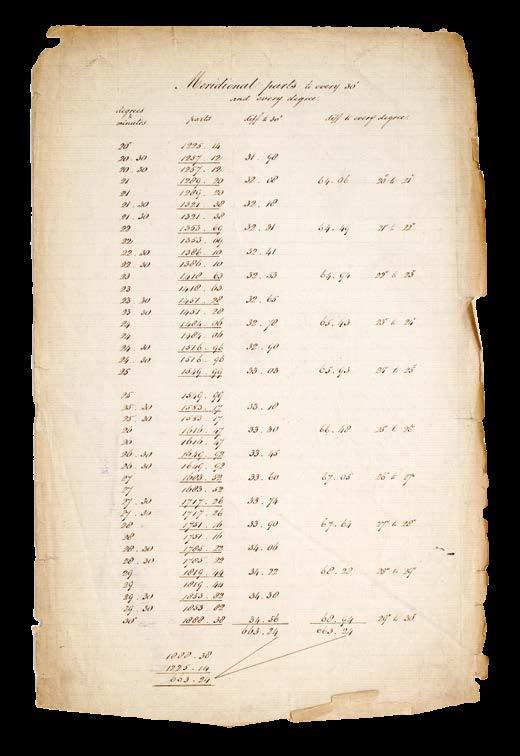 Meridional parts to every 30'
and every degree.
degrees & minutes. parts diff to 30' diff to every degree.
20° 1225.14
20.30 1257.12 31.98
20.30 1257.12
21 1289.20 32.08 64.06 20° to 21°
21 1289.20
21.30 1321.38 32.18
21.30 1321.38
22 1353.69 32.31 64.49 21° to 22°
22 1353.69
22.30 1386.10 32.41
22.30 1386.10
23 1418.63 32.53 64.94 22° to 23°
23 1418.63
23.30 1451.28 32.65
23.30 1451.28
24 1484.06 32.78 65.43 23° to 24°
24 1484.06
24.30 1516.96 32.90
24.30 1516.96
25 1549.99 33.03 65.93 24° to 25°
25 1549.99
25.30 1583.17 33.18
25.30 1583.17
26 1616.47 33.30 66.48 25° to 26°
26 1616.47
26.30 1649.92 33.45
26.30 1649.92
27 1683.52 33.60 67.05 26° to 27°
27 1683.52
27.30 1717.26 33.74
27.30 1717.26
28 1751.16 33.90 67.64 27° to 28°
28 1751.16
28.30 1785.22 34.06
28.30 1785.22
29 1819.44 34.22 68.28 28° to 29°
29 1819.44
29.30 1853.82 34.38
29.30 1853.82
30° 1888.38 34.56 68.94 29° to 30°
663.24 663.24
1888.38
1225.14
663.24